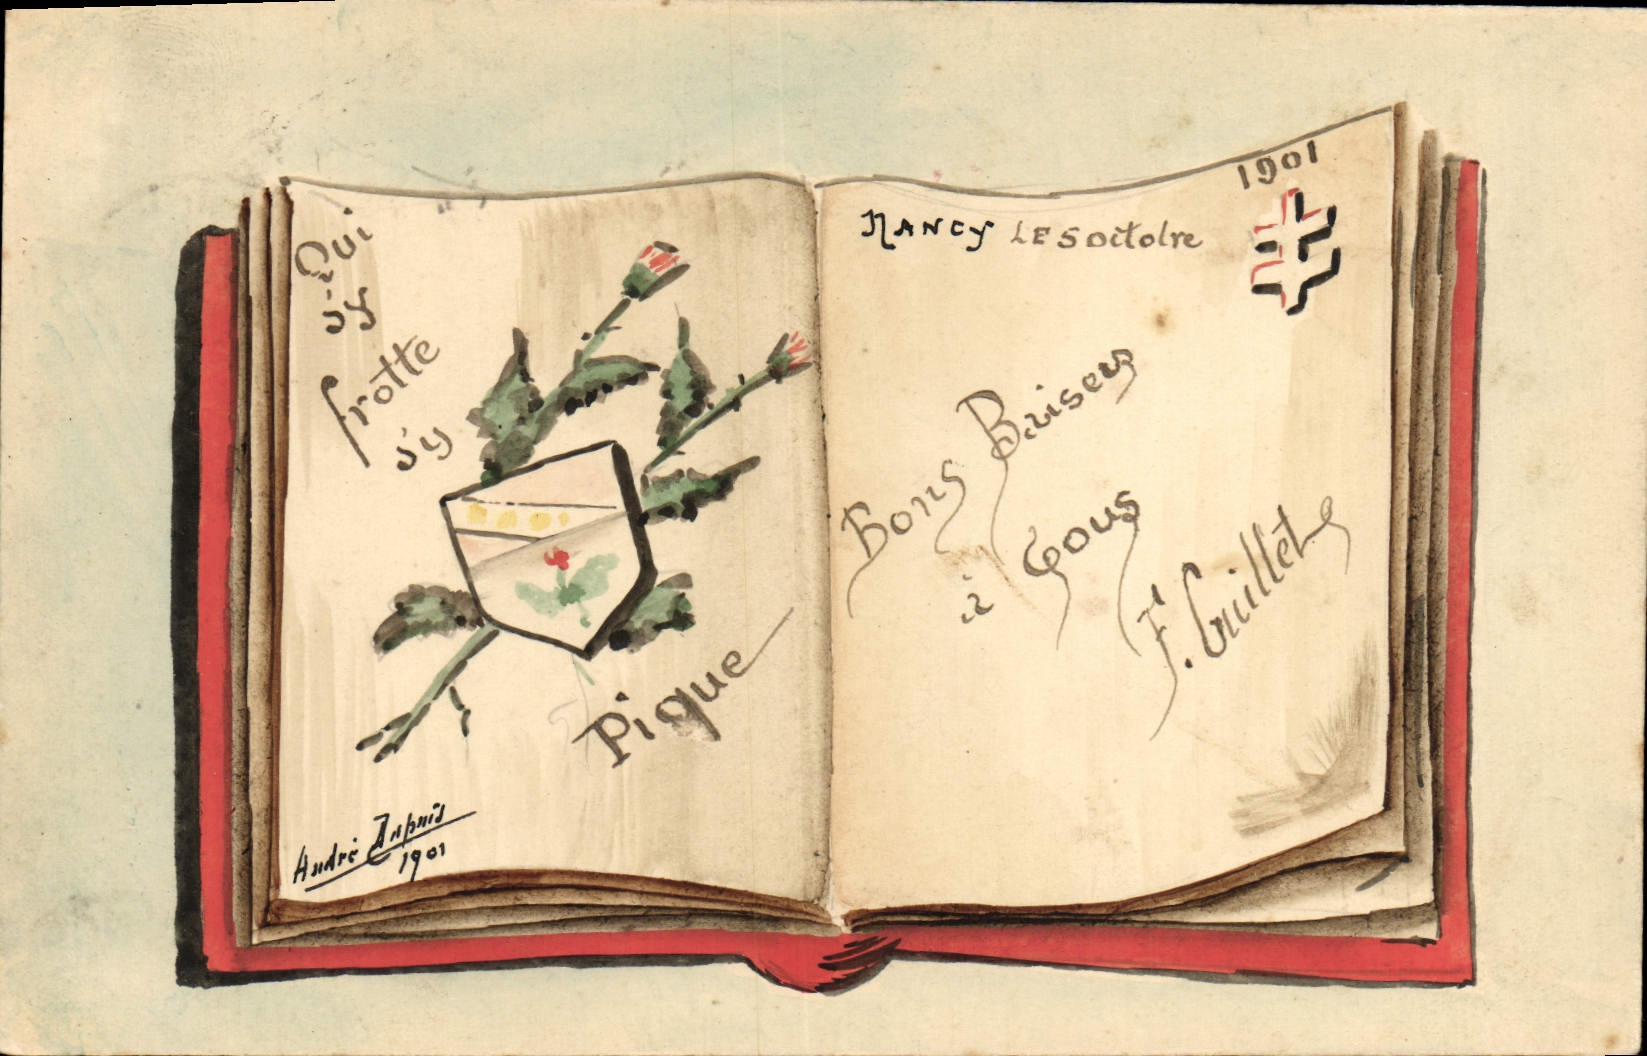 Qui
s'y
frotte
s'y
Pique
André Dupuis
1901
1901
NANCY LE 5 octobre
Bons Baisers
à Tous
F. Guillet